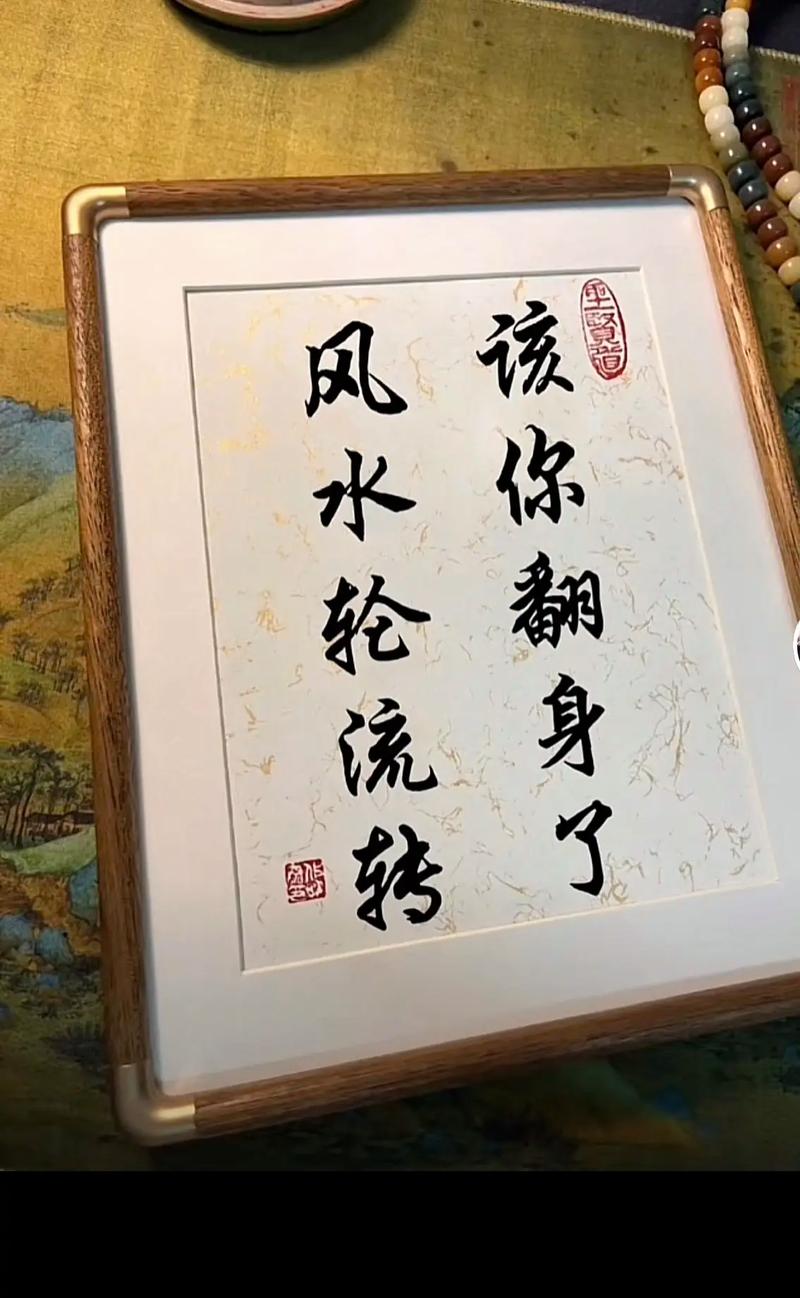 该你翻身了
风水轮流转